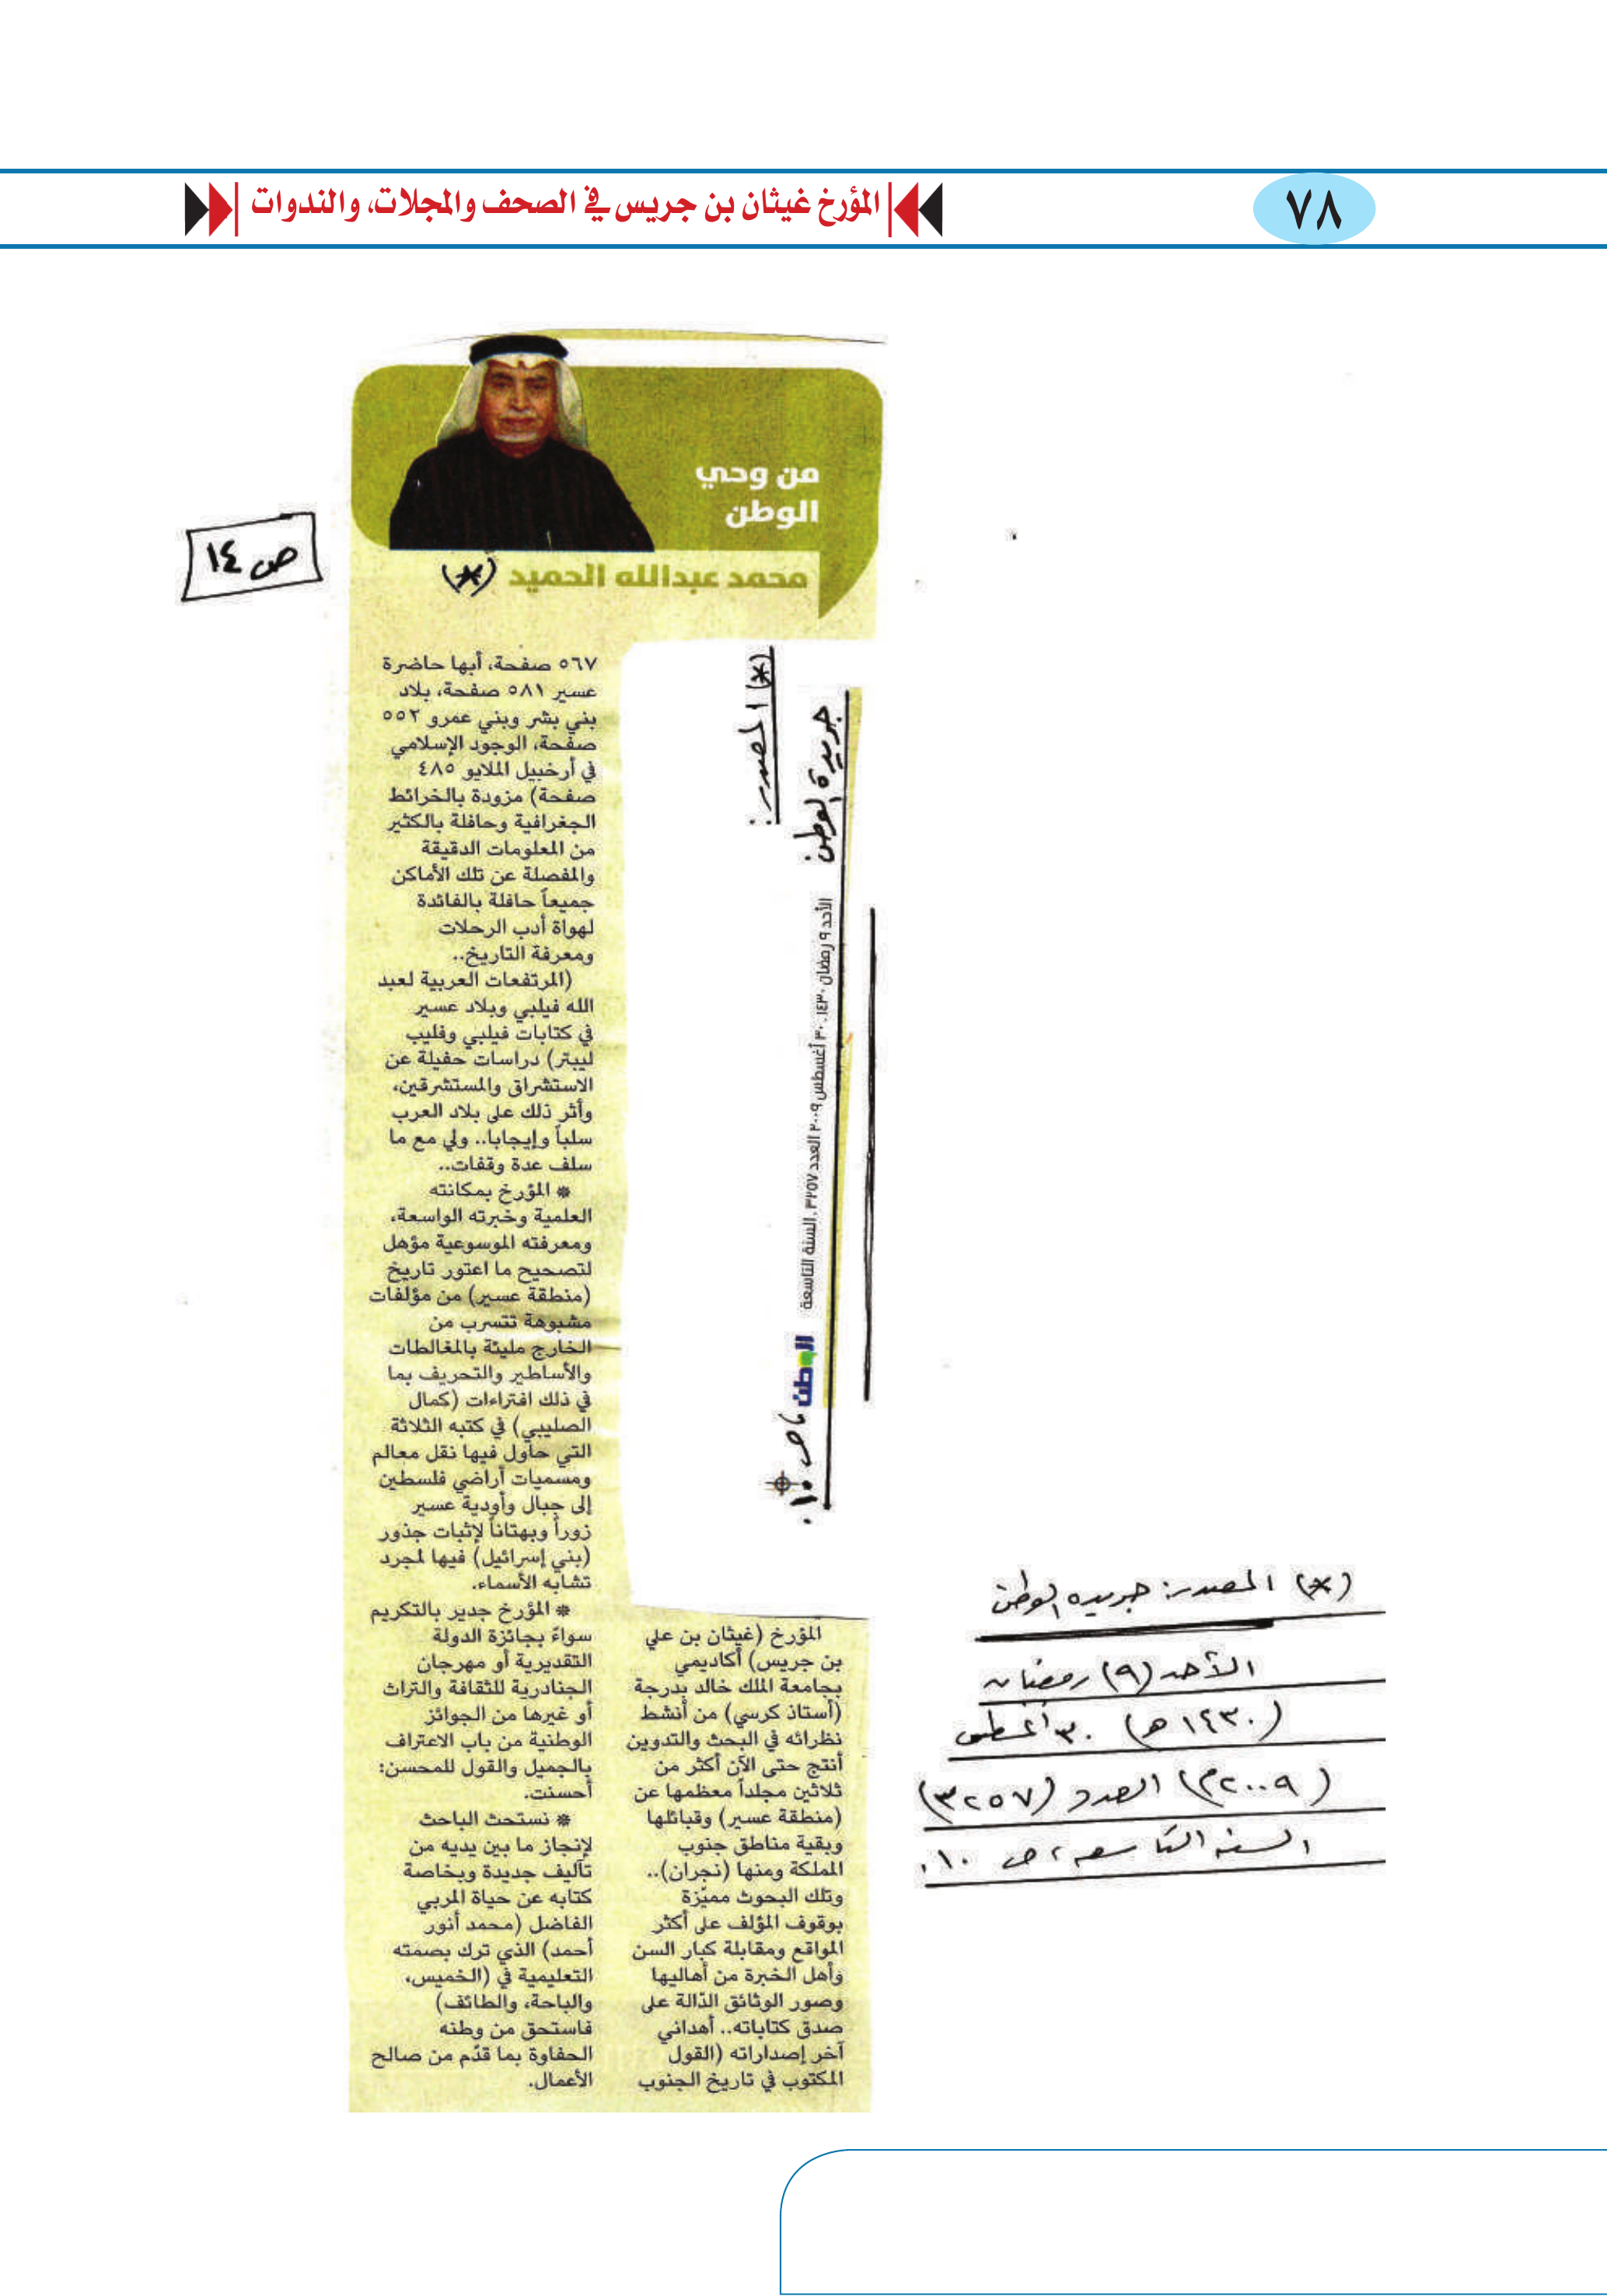 ٧٨
المؤرخ غيثان بن جريس في الصحف والمجلات، والندوات
من وحي
الوطن
محمد عبدالله الحميد (*)
ص ١٤
(*) المصدر:
جريدة الوطن
الأحد ٩ رمضان ١٤٣٠. ٣٠ أغسطس ٢٠٠٩ العدد ٣٢٥٧. السنة التاسعة
الوطن
ص ١٠.
المؤرخ (غيثان بن علي
بن جريس) أكاديمي
بجامعة الملك خالد بدرجة
(أستاذ كرسي) من أنشط
نظرائه في البحث والتدوين
أنتج حتى الآن أكثر من
ثلاثين مجلداً معظمها عن
(منطقة عسير) وقبائلها
وبقية مناطق جنوب
المملكة ومنها (نجران)..
وتلك البحوث مميّزة
بوقوف المؤلف على أكثر
المواقع ومقابلة كبار السن
وأهل الخبرة من أهاليها
وصور الوثائق الدّالة على
صدق كتاباته.. أهداني
آخر إصداراته (القول
المكتوب في تاريخ الجنوب
٥٦٧ صفحة، أبها حاضرة
عسير ٥٨١ صفحة، بلاد
بني بشر وبني عمرو ٥٥٢
صفحة، الوجود الإسلامي
في أرخبيل الملايو ٤٨٥
صفحة) مزودة بالخرائط
الجغرافية وحافلة بالكثير
من المعلومات الدقيقة
والمفصلة عن تلك الأماكن
جميعاً حافلة بالفائدة
لهواة أدب الرحلات
ومعرفة التاريخ..
(المرتفعات العربية لعبد
الله فيلبي وبلاد عسير
في كتابات فيلبي وفليب
ليبتز) دراسات حفيلة عن
الاستشراق والمستشرقين،
وأثر ذلك على بلاد العرب
سلباً وإيجابا.. ولي مع ما
سلف عدة وقفات..
* المؤرخ بمكانته
العلمية وخبرته الواسعة،
ومعرفته الموسوعية مؤهل
لتصحيح ما اعتور تاريخ
(منطقة عسير) من مؤلفات
مشبوهة تتسرب من
الخارج مليئة بالمغالطات
والأساطير والتحريف بما
في ذلك افتراءات (كمال
الصليبي) في كتبه الثلاثة
التي حاول فيها نقل معالم
ومسميات أراضي فلسطين
إلى جبال وأودية عسير
زوراً وبهتاناً لإثبات جذور
(بني إسرائيل) فيها لمجرد
تشابه الأسماء.
* المؤرخ جدير بالتكريم
سواءً بجائزة الدولة
التقديرية أو مهرجان
الجنادرية للثقافة والتراث
أو غيرها من الجوائز
الوطنية من باب الاعتراف
بالجميل والقول للمحسن:
أحسنت.
* نستحث الباحث
لإنجاز ما بين يديه من
تآليف جديدة وبخاصة
كتابه عن حياة المربي
الفاضل (محمد أنور
أحمد) الذي ترك بصمته
التعليمية في (الخميس،
والباحة، والطائف)
فاستحق من وطنه
الحفاوة بما قدّم من صالح
الأعمال.
(*) المصدر: جريدة الوطن
الأحد (٩) رمضان
(١٤٣٠هـ) ٣٠ أغسطس
(٢٠٠٩م) العدد (٣٢٥٧)
السنة التاسعة، ص ١٠.